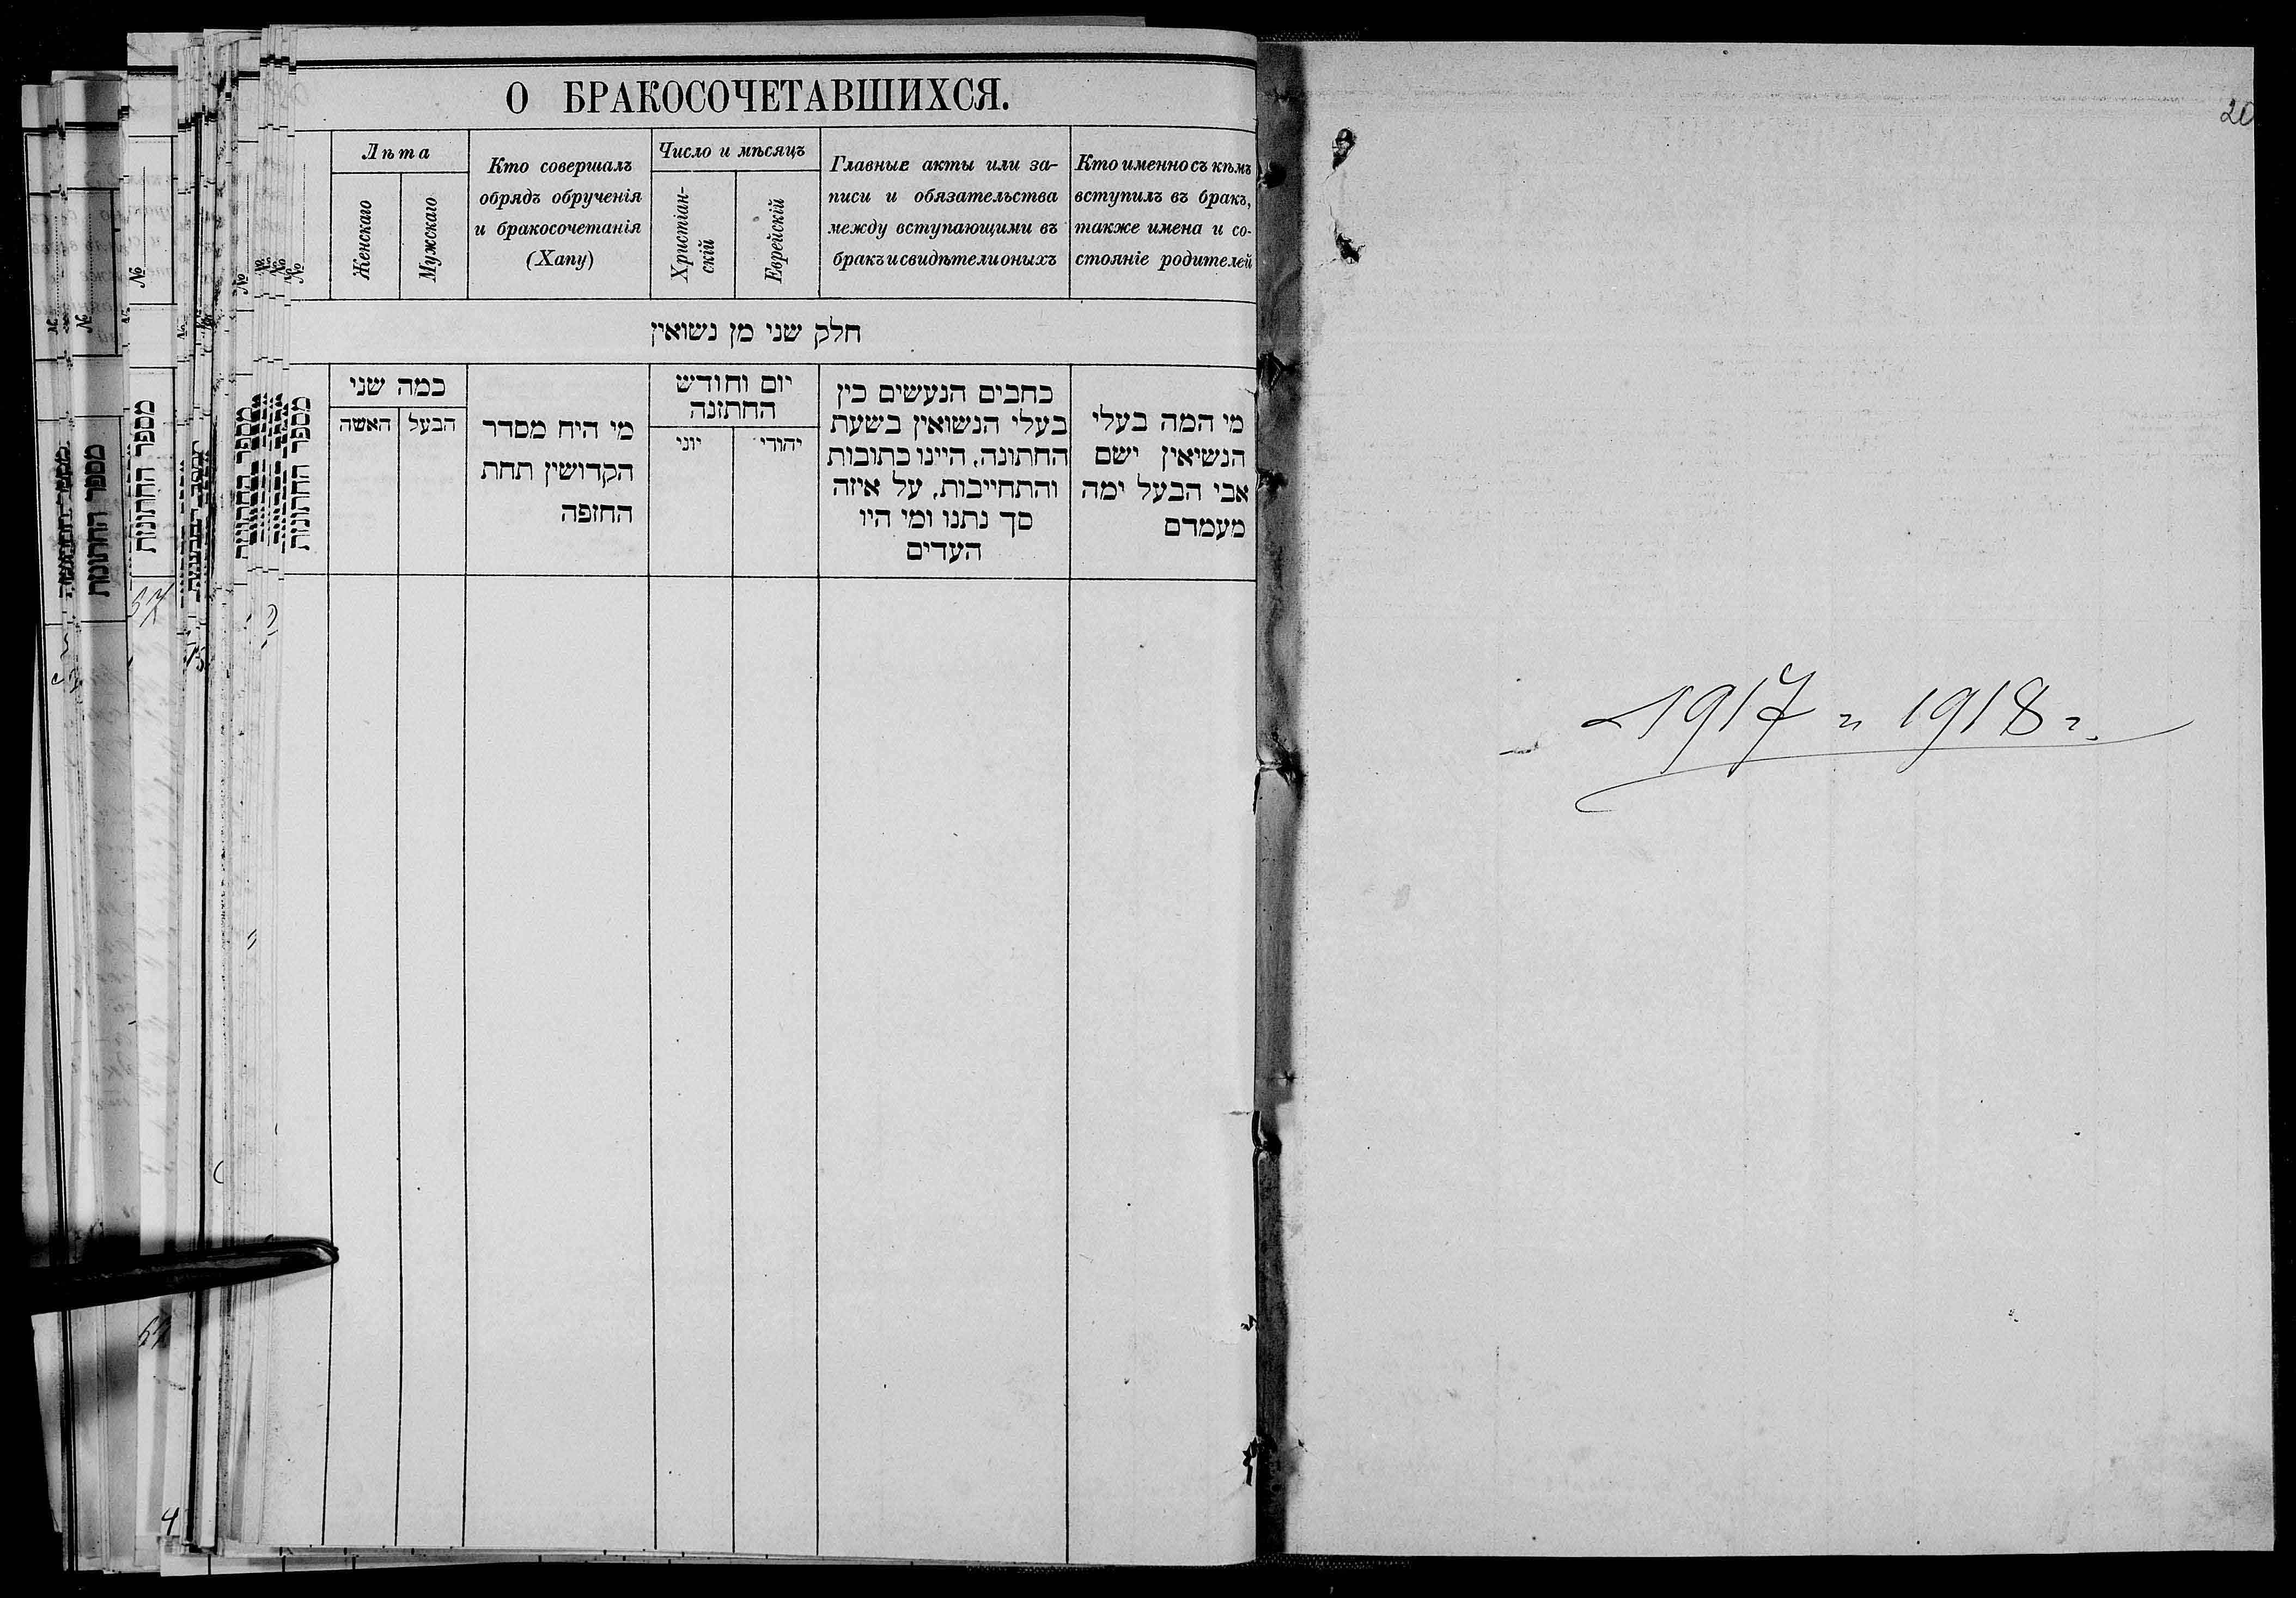 О БРАКОСОЧЕТАВШИХСЯ.
№
Лѣта
Женскаго
Мужскаго
Кто совершалъ
обрядъ обрученія
и бракосочетанія
(Хапу)
Число и мѣсяцъ
Христіан-
скій
Еврейскій
Главные акты или за-
писи и обязательства
между вступающими въ
бракъ и свидѣтели оныхъ
Кто именно съ кѣмъ
вступилъ въ бракъ,
также имена и со-
стояніе родителей
חלק שני מן נשואין
מספר החתונות
כמה שני
האשה
הבעל
מי היח מסדר
הקדושין תחת
החופה
יום וחודש
החתונה
יוני
יהודי
כתבים הנעשים בין
בעלי הנשואין בשעת
החתונה, היינו כתובות
והתחייבות, על איזה
סך נתנו ומי היו
העדים
מי המה בעלי
הנשיאין ישם
אבי הבעל ימה
מעמדם
20
1917 и 1918 г.